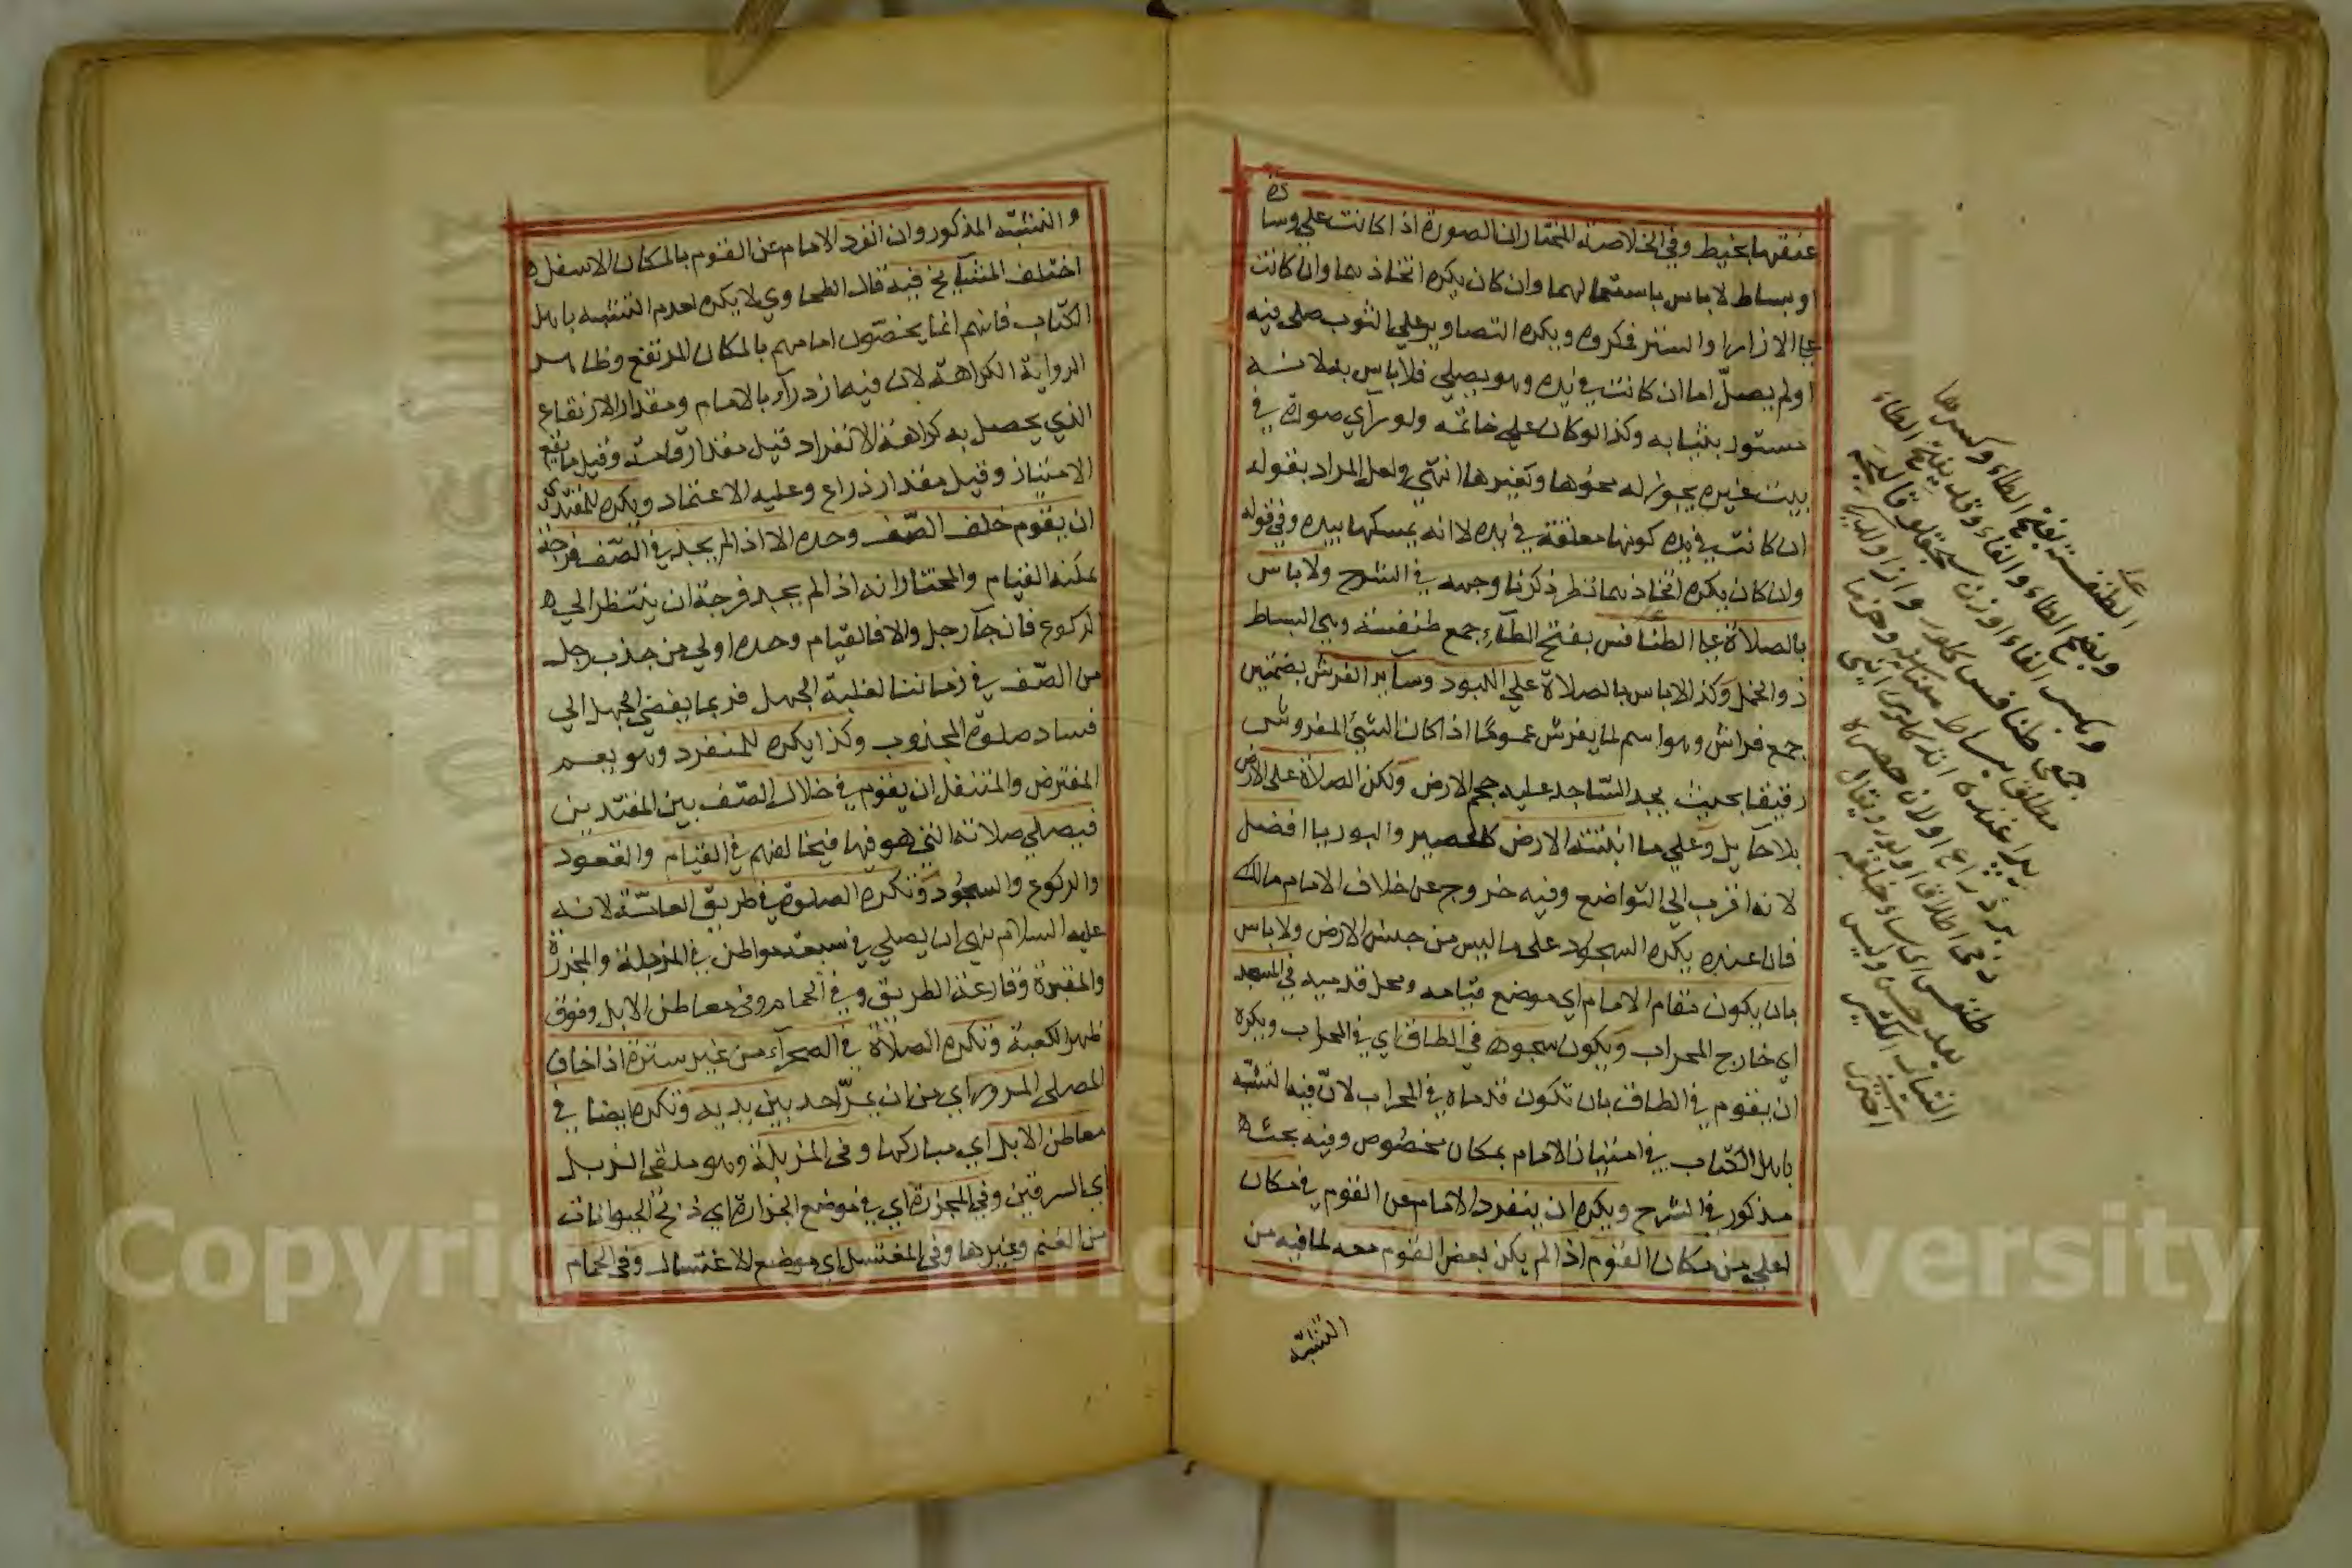 عنقها بخيط وفي الخلاصة المختار ان الصورة اذا كانت علي وسادة
او بساط لا باس باستعمالهما وان كان يكره اتخاذهما وان كانت
علي الازار او الستر فكروه ويكره التصاوير علي الثوب صلي فيه
او لم يصلّ اما ان كانت في يده وهو يصلي فلا باس به لانه
مستور بثيابه وكذا لو كان علي خاتمه ولو رآي صورة في
بيت غيره يجوز له محوها وتغيرها انتهي ولعل المراد بقوله
ان كانت في يده كونها معلقة في يده لا انه يمسكها بيده وفي قوله
وان كان يكره اتخاذهما نظر ذكرنا وجهه في الشرح ولا باس
بالصلاة علي الطنافس بفتح الطآء جمع طنفسة وهي البساط
ذو الخمل وكذا لا باس بالصلاة علي اللبود وسآير الفرش بضمتين
جمع فراش وهو اسم لما يفرش عمومًا اذا كان الشيئ المفروش
رقيقا بحيث يجد السّاجد عليه حجم الارض ولكن الصلاة علي الارض
بلا حآيل وعلي ما انبتته الارض كالحصير والبوريا افضل
لانه اقرب الي التواضع وفيه خروج عن خلاف الامام مالك
فان عنده يكره السجود علي ما ليس من جنس الارض ولا باس
بان يكون مقام الامام اي موضع قيامه ومحل قدميه في المسجد
اي خارج المحراب ويكون سجوده في الطاق اي في المحراب ويكره
ان يقوم في الطاق بان تكون قدماه في المحراب لانّ فيه التشبّه
باهل الكتاب في امتياز الامام بمكان مخصوص وفيه بحث
مذكور في الشرح ويكره ان ينفرد الامام عن القوم في مكان
اعلي من مكان القوم اذا لم يكن بعض القوم معه لما فيه من
التشبّه
الطنفسة بفتح الطاء وكسرها
وبضم الطاء والفاء وقد يفتح الطاء
وبكسر الفاء
جمعي طنافس كلور
مطلقا بساط معناسنه
والتشبّه المذكور وان انفرد الامام عن القوم بالمكان الاسفل
اختلف المشآيخ فيه قال الطحاوي لا يكره لعدم التشبه باهل
الكتاب فانهم انما يخصّون امامهم بالمكان المرتفع وظاهر
الرواية الكراهة لان فيه ازدرآء بالامام ومقدار الارتفاع
الذي يحصل به كراهة الانفراد قيل مقدار قامة وقيل ما يقع
الامتياز وقيل مقدار ذراع وعليه الاعتماد ويكره للمقتدي
ان يقوم خلف الصّف وحده الا اذا لم يجد في الصّف فرجة
يمكنه القيام والمختار انه اذا لم يجد فرجة ان ينتظر الي
الركوع فان جآء رجل والا فالقيام وحده اولي من جذب رجل
من الصّف في زماننا لغلبة الجهل فربما يفضي الجهل الي
فساد صلوة المجذوب وكذا يكره للمنفرد وهو يعم
المفترض والمتنفل ان يقوم في خلال الصّف بين المقتدين
فيصلي صلاته التي هو فيها فيخالفهم في القيام والقعود
والركوع والسجود وتكره الصلوة في طريق العامّة لانه
عليه السلام نهي ان يصلي في سبعة مواطن في المزبلة والمجزرة
والمقبرة وقارعة الطريق وفي الحمام وفي معاطن الابل وفوق
ظهر الكعبة وتكره الصلاة في الصحرآء من غير سترة اذا خاف
المصلي المرور اي من ان يمرّ احد بين يديه وتكره ايضا في
معاطن الابل اي مباركها وفي المزبلة وهو ملقي الزبل
اي السرقين وفي المجزرة اي في موضع الجزارة اي ذبح الحيوانات
من الغنم وغيرها وفي المغتسل اي موضع الاغتسال وفي الحمام
Copyright © King Saud University